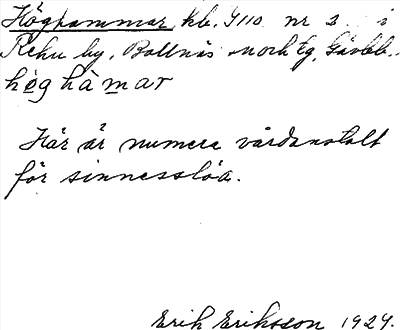 Höghammar, hb. 9110 nr 2 i
Rehn by, Bollnäs sn och tg, Gävb.
hög hàmar
Här är numera vårdanstalt
för sinnesslöa.
Erik Eriksson 1924.